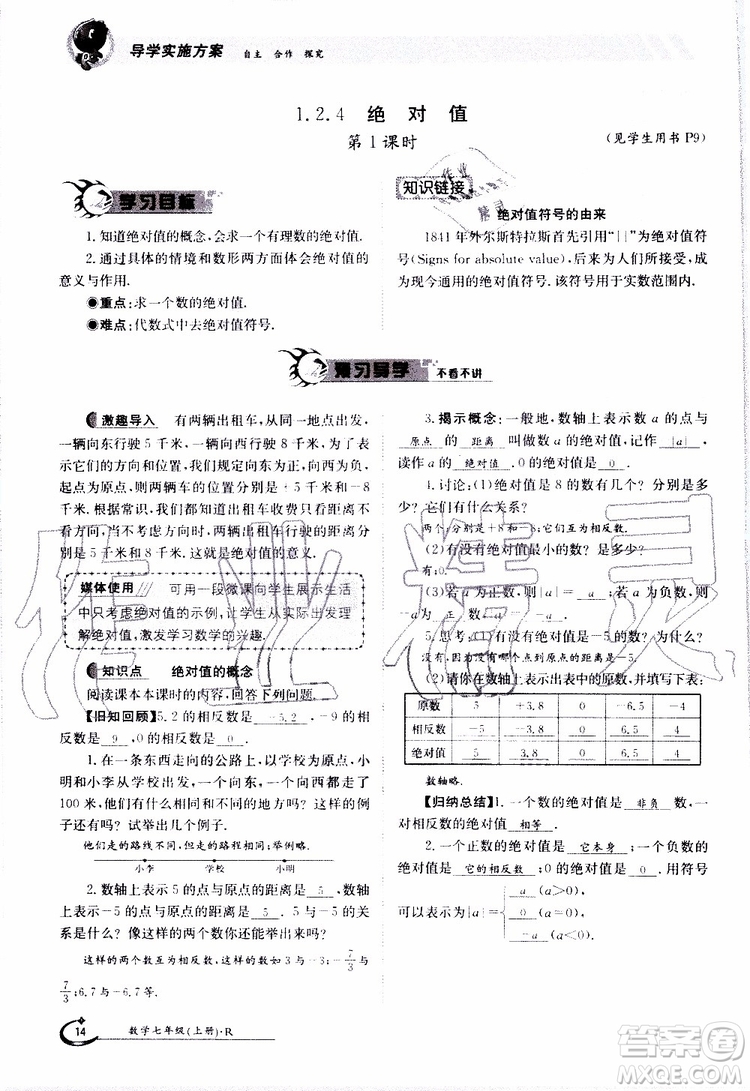 导学实施方案 自主 合作 探究
1.2.4 绝对值
第1课时
(见学生用书 P9)
学习目标
1.知道绝对值的概念,会求一个有理数的绝对值.
2.通过具体的情境和数形两方面体会绝对值的
意义与作用.
●重点:求一个数的绝对值.
●难点:代数式中去绝对值符号.
知识链接
绝对值符号的由来
1841年外尔斯特拉斯首先引用“||”为绝对值符
号(Signs for absolute value),后来为人们所接受,成
为现今通用的绝对值符号.该符号用于实数范围内.
预习导学 不看不讲
激趣导入 有两辆出租车,从同一地点出发,
一辆向东行驶5千米,一辆向西行驶8千米,为了表
示它们的方向和位置,我们规定向东为正,
起点为原点,则两辆车的位置分别记为5千米和-8
千米.但是,我们知道,出租车收费时只看路程,不
看方向,这时两辆车的出租车行驶的距离分别为5
千米和8千米.这就是绝对值的意义.
媒体使用 可用一段微课向学生展示生活
中只考虑绝对值的示例,让学生从实际出发理
解绝对值,激发学习数学的兴趣.
知识点 绝对值的概念
阅读课本本课时的内容,回答下列问题.
【旧知回顾】5.2的相反数是 -5.2 ,-9的相反
数是 9 ,0的相反数是 0 .
1.在一条东西走向的公路上,以学校为原点,小
明和小李从学校出发,一个向东,一个向西都走了
100米,他们的行走有哪些相同和不同的地方?这样的例
子多吗?试举出几个例子.
他们走的路线不同,但走的路程相同,例子略.
小李 学校 小明
2.数轴上表示5的点与原点的距离是 5 ,数
轴上表示-5的点与原点的距离是 5 .这样的例
子多吗?像这样的两个数你还能举出来吗?
这样的两个数互为相反数如3与-3;-7/3与
7/3;6.7与-6.7等.
3.揭示概念:一般地,数轴上表示数a的点与
原点 的 距离 叫做数a的绝对值,记作 |a| ,
读作a的 绝对值 .0的绝对值是 0 .
4.讨论:(1)绝对值是8的数有几个?分别是多
少?它们有什么关系?
两个;分别是+8和-8;它们互为相反数.
(2)有没有绝对值最小的数?是多少?
有;0.
(3)若a为正数,则|a|= a ;若a为负数,则
5.思考:(1)有没有绝对值为负数?为什么?
没有,因为没有哪个点到原点的距离为负数.
(2)请你在数轴上表示出表中的原数,并填写下表:
原数 5 +3.8 0 -6.5 -4
相反数 -5 -3.8 0
绝对值 5 3.8 0 6.5 4
数轴略.
【归纳总结】1.一个数的绝对值是 非负 数,一
对相反数的绝对值 相等 .
2.一个正数的绝对值是 它本身 ;一个负数的
绝对值是 它的相反数 ;0的绝对值是 0 .用符号
可以表示为|a|= { a (a>0),
0 (a=0),
-a (a<0).
14 数学七年级(上册)·R
作业精灵